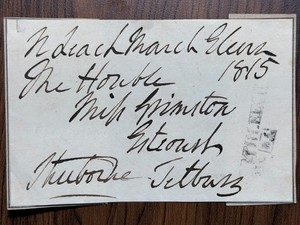 N Leach March Eleven
1815
The Honble
Miss Grimston
Estcourt
Sherborne Tetbury